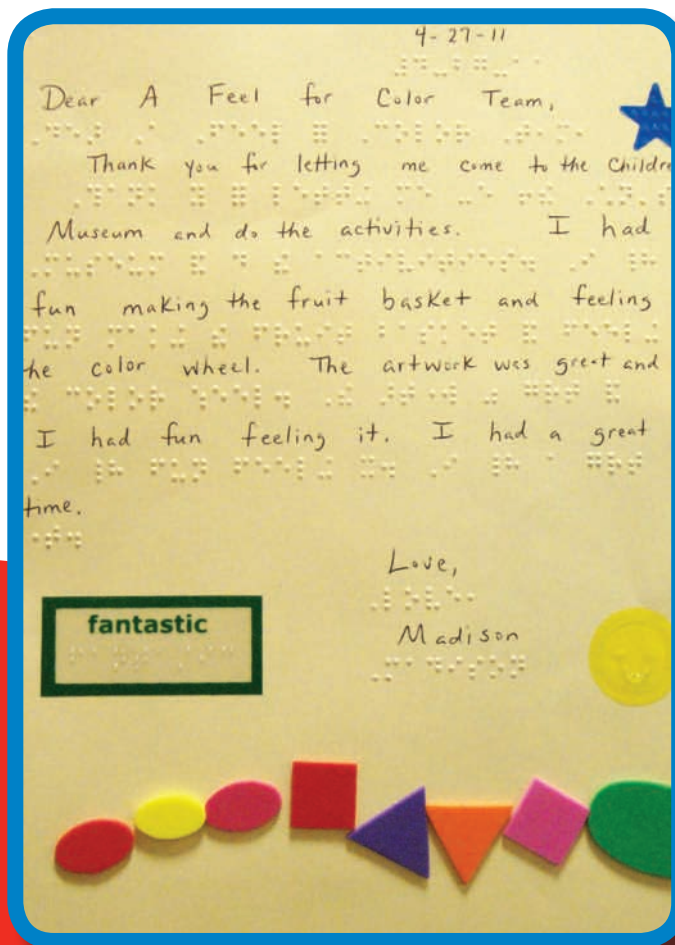 4-27-11
Dear A Feel for Color Team,
Thank you for letting me come to the Childre
Museum and do the activities. I had
fun making the fruit basket and feeling
he color wheel. The artwork was great and
I had fun feeling it. I had a great
time.
Love,
fantastic
Madison